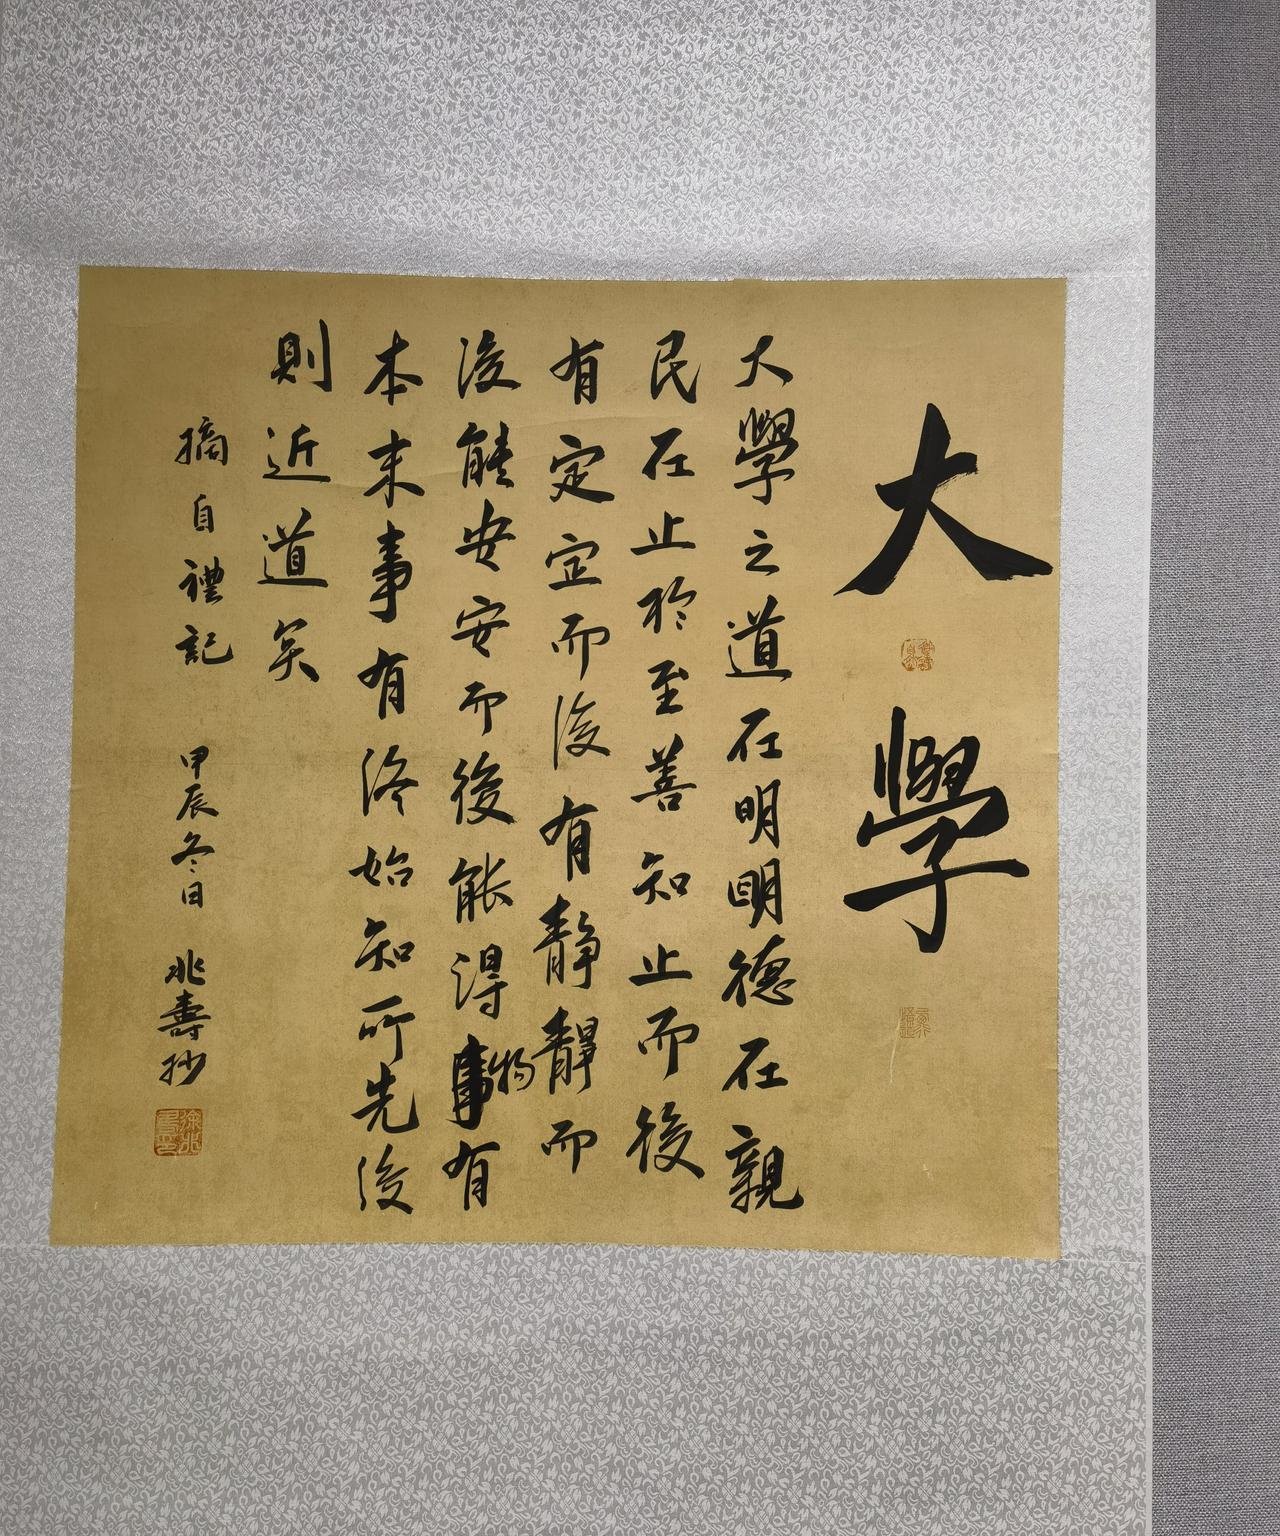 大學
大學之道在明明德在親
民在止於至善知止而後
有定定而後有靜靜而
後能安安而後能得事物有
本末事有終始知所先後
則近道矣
摘自禮記 甲辰冬日 兆壽抄